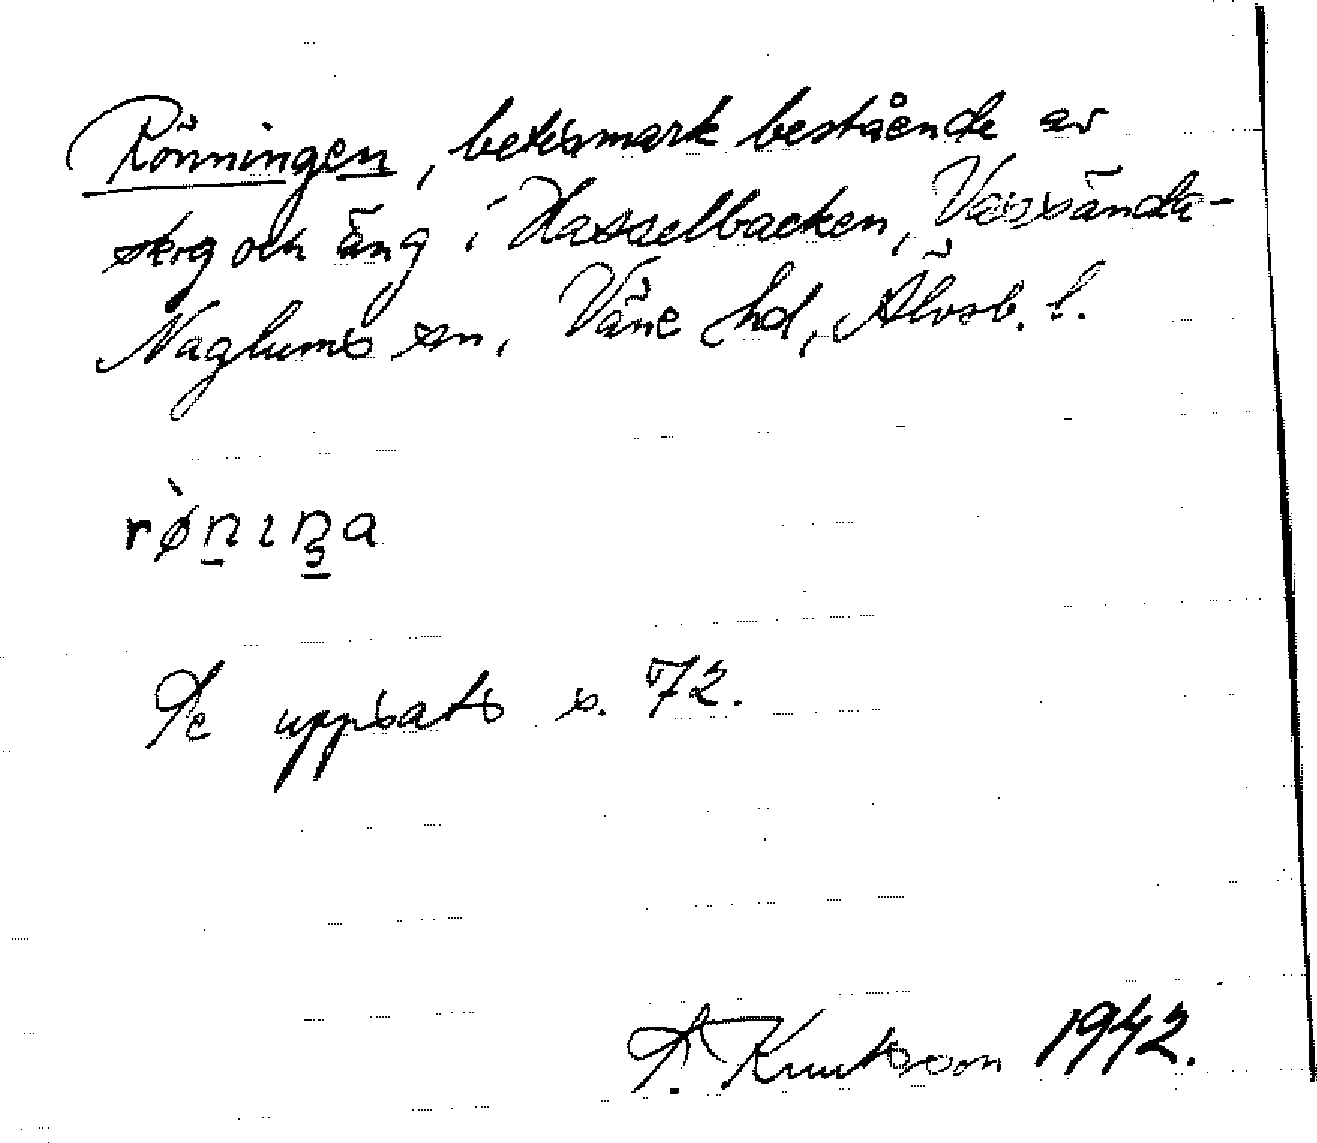 Rönningen, betesmark bestående av
skog och äng i Hasselbacken, Vassända-
Naglums sn, Väne hd, Älvsb. l.
rø̀n̠ɩn̠a
Se uppsats s. 72.
A. Knutsson 1942.